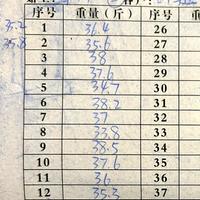 序号 重量（斤） 序号
35.2 1 36.4 26
35.8 2 35.6 27
3 38 28
4 37.6 29
5 34.7 30
6 38.2 31
7 37 32
8 33.8 33
9 38.5 34
10 37.6 35
11 36 36
12 35.3 37